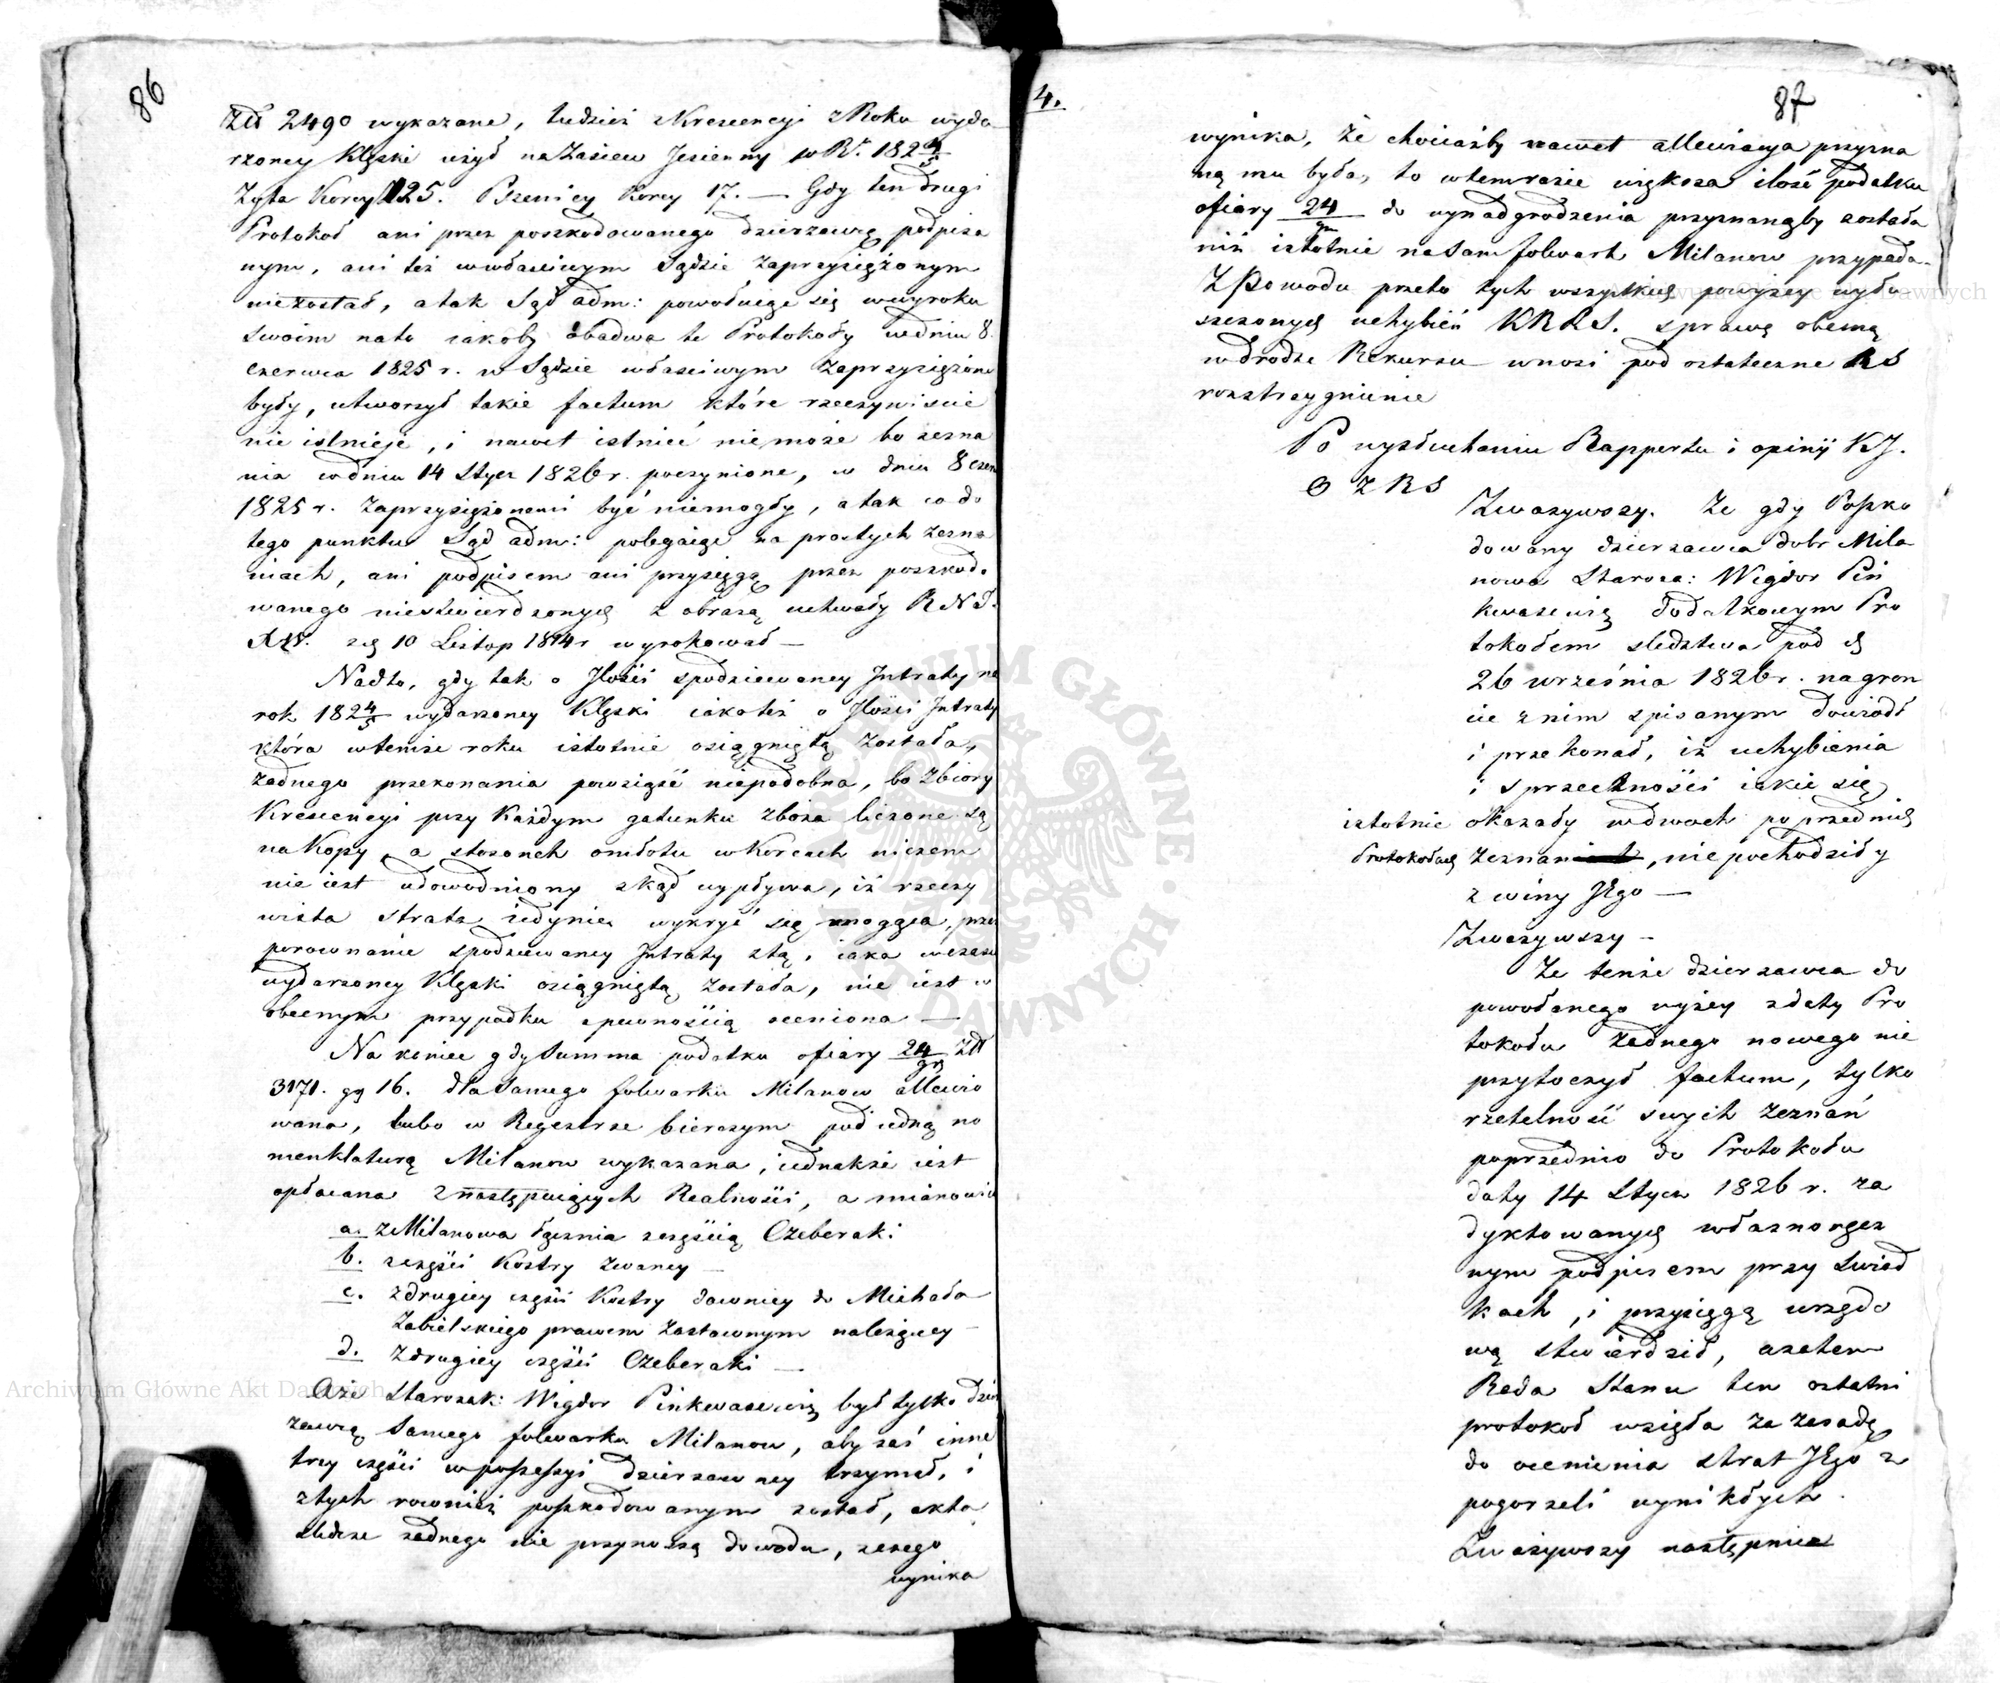 86
Złł 2490 wykazane, tudzież z Krescencyi z Roku wyda
rzoney Klęski użyć na zasiew Jesienny w R. 182 4/5
Żyta Korcy 125. Pszenicy Korcy 17. — Gdy ten drugi
Protokoł ani przez poszkodowanego dzierżawcę podpisa
nym, ani też w właściwym Sądzie zaprzysiężonym
nie został, a tak Sąd adm: powołuiąc się w wyroku
swoim na to iakoby obadwa te Protokoły w dniu 8.
czerwca 1825 r. w Sądzie właściwym zaprzysiężone
były, utworzył takie factum, które rzeczywiście
nie istnieje, i nawet istnieć nie może bo zezna
nia w dniu 14 Stycz 1826 r. poczynione, w dniu 8 czer
1825 r. zaprzysiężonemi być niemogły, a tak co do
tego punktu Sąd adm: polegaiąc na prostych zezna
niach, ani podpisem ani przysięgą przez poszkodo
wanego niestwierdzonych z obrazą uchwały R Nd.
z d. 10 Listop 1814 r wyrokował —
Nadto, gdy tak o Jlości spodziewaney Jntraty na
rok 182 4/5 wydarzoney Klęski iakoteż o Jlości Jntraty
która w temże roku istotnie osiągniętą została,
żadnego przekonania powziąść niepodobna, bo zbiory
Krescencyi przy Każdym gatunku zboża liczone są
na Kopy, a stosunek omłotu w Korcach niczem
nie iest udowodniony zkąd wypływa, iż rzeczy
wista strata iedynie wykryć się mogąca, przez
porownanie spodziewaney Jntraty z tą, iaka w czasie
wydarzoney Klęski osiągniętą została, nie iest w
obecnym przypadku z pewnością oceniona —
Na koniec gdy Summa podatku ofiary 24/gr Złł
3171. gr 16. dla samego folwarku Milanow allewio
wana, lubo w Regestrze bierczym pod iedną no
menklaturą Milanow wykazana, iednakże iest
opłacana z następuiących Realności, a mianowicie
a. z Milanowa łącznia z częścią Czeberaki
b. z części Kostry zwaney —
c. z drugiey części Kostry dawniey do Michała
Zabielskiego prawem zastawnym należącey —
d. z drugiey części Czeberaki —
Aże Starozak: Wigdor Pinkwasewicz był tylko dzier
żawcą samego folwarku Milanow, aby zaś inne
trzy części w possessyi dzierżawney trzymał, i
z tych rownież poszkodowanym został, akta
śledcze żadnego nie przynoszą dowodu, z czego
wynika
4.
87
wynika, że chociażby nawet allewiacya przyzna
ną mu była, to w tem razie większa ilość podatku
ofiary 24/gr do wynadgrodzenia przyznanąby została
niż istotnie na Sam folwark Milanow przypada.
Z Powodu przeto tych wszystkich powyżey wyłu
szczonych uchybień KRRS. sprawę obecną
w drodze Rekursu wnosi pod ostateczne RS
rozstrzygnienie
Po wysłuchaniu Rapportu i opinij KJ.
O Z RS
Zważywszy. Że gdy Poszko
dowany dzierżawca dobr Mila
nowa Staroza: Wigdor Pin
kwasewicz dodatkowym Pro
tokołem śledztwa pod d.
26 września 1826 r. na gron
cie z nim spisanym dowiodł
i przekonał, iż uchybienia
i sprzeczności iakie się
istotnie okazały w dwoch poprzednich
Protokołach zeznań, nie pochodziły
z winy Jego —
Zważywszy —
Że tenże dzierżawca do
powołanego wyżey z daty Pro
tokołu żadnego nowego nie
przytoczył factum, tylko
rzetelność swych zeznań
poprzednio do Protokołu
daty 14 Stycz 1826 r. za
dyktowanych własnoręcz
nym podpisem przy świad
kach, i przysięgą urzędo
wą stwierdził, a zatem
Rada Stanu ten ostatni
protokoł wzięła za zasadę
do ocenienia strat Jego z
pogorzeli wynikłych.
Zważywszy następnie